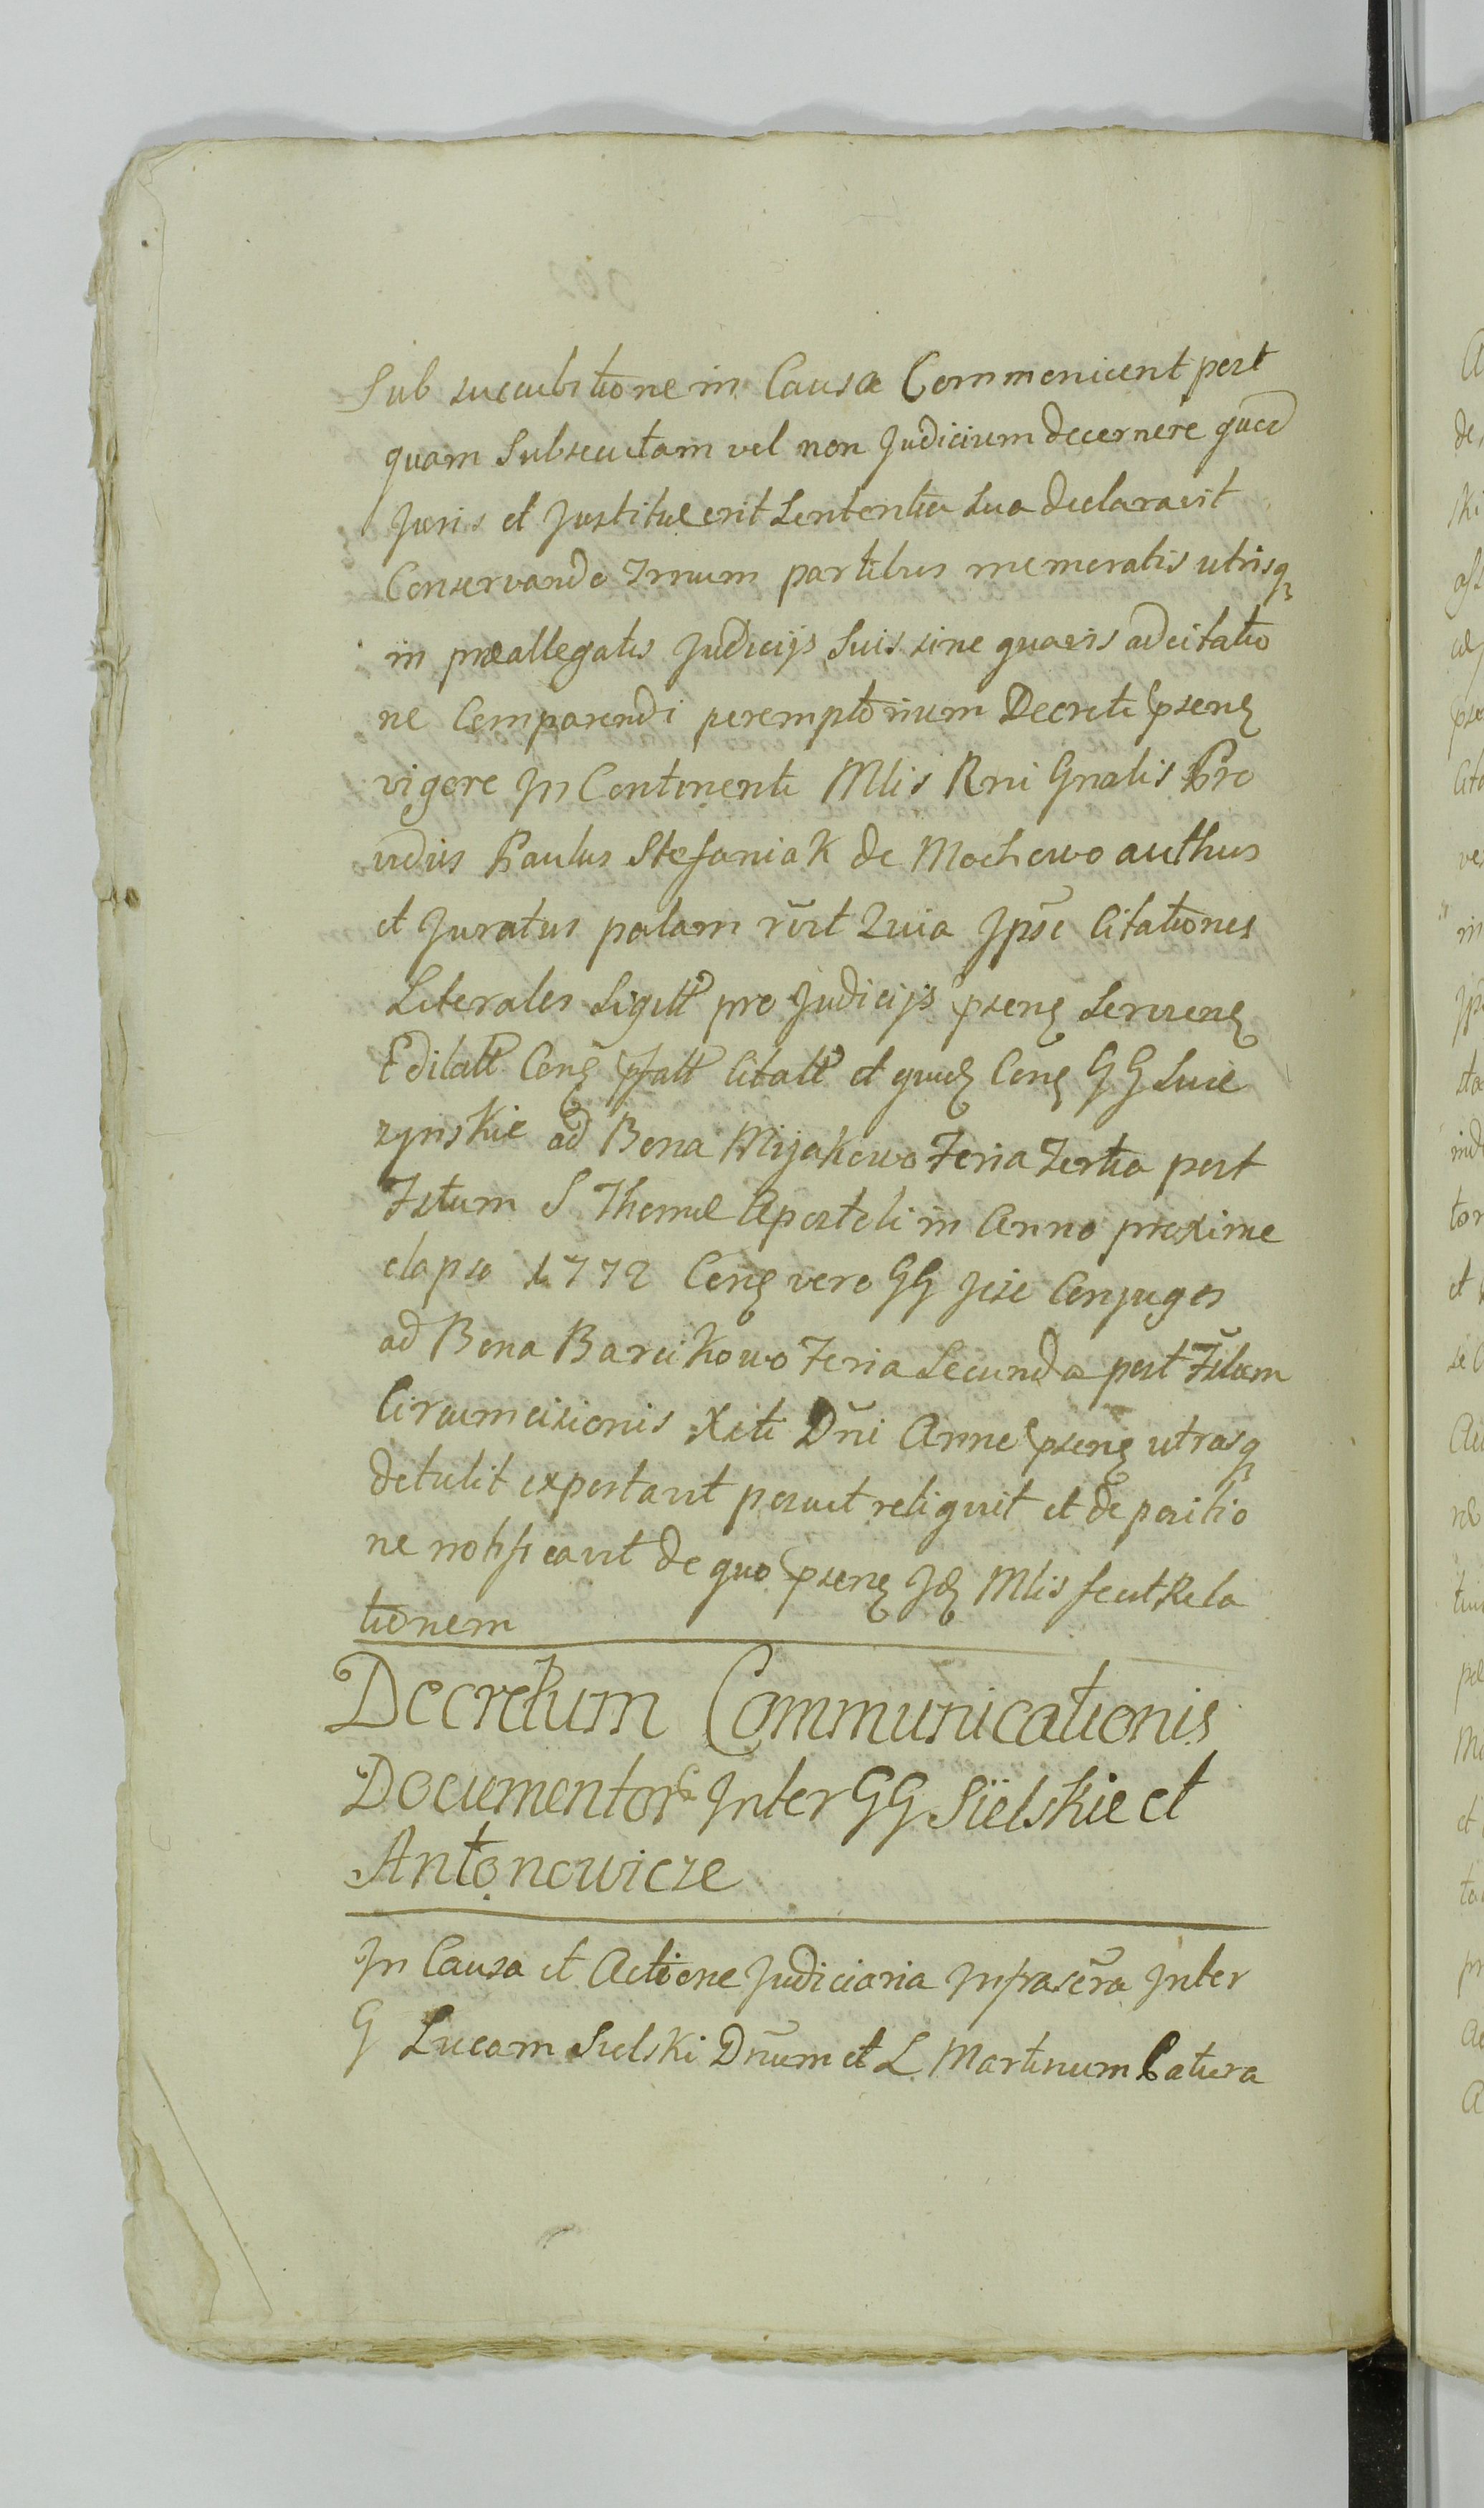 Sub succubitione in Causa Commonicent post
quam Subsecutam vel non Judicium decernere quod
Juris et Justitiæ erit Sententia sua declaravit
Conservando Trnum partibus memoratis utrisq
in præallegatis Judicijs Suis sine quavis adcitatio
ne Comparendi peremptorium Decreti pseng
vigore In Continenti Mlis Rni Gnalis Pro
vidus Paulus Stefaniak de Mochowo authus
et Juratus palam rūit Quia Ipse Citationes
Literales Sigill pro Judicijs pseng Servieng
Edilatt Cong pfatt Citatt et quid Cong GG Suie
rzynskie ad Bona Mijakowo Feria Tertia post
Fstum S Thomæ Apostoli in Anno proxime
elapso 1772 Cong vero GG Jese Conjuges
ad Bona Barcikowo Feria Secunda post Fstum
Circumcisionis Xsti Dni Anne pseng utrasq
detulit exportavit posuit reliquit et de positio
ne notificavit de quo pseng Id Mlis fecit Rela
tionem
Decretum Communicationis
Documentor Inter GG Sielskie et
Antonowicze
In Causa et Actione Judiciaria Infrascra Inter
G Lucam Sielski Dnum et L Martinum Catera